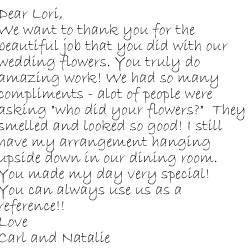 Dear Lori,
We want to thank you for the
beautiful job that you did with our
wedding flowers. You truly do
amazing work! We had so many
compliments - alot of people were
asking "who did your flowers?" They
smelled and looked so good! I still
have my arrangement hanging
upside down in our dining room.
You made my day very special!
You can always use us as a
reference!!
Love
Carl and Natalie